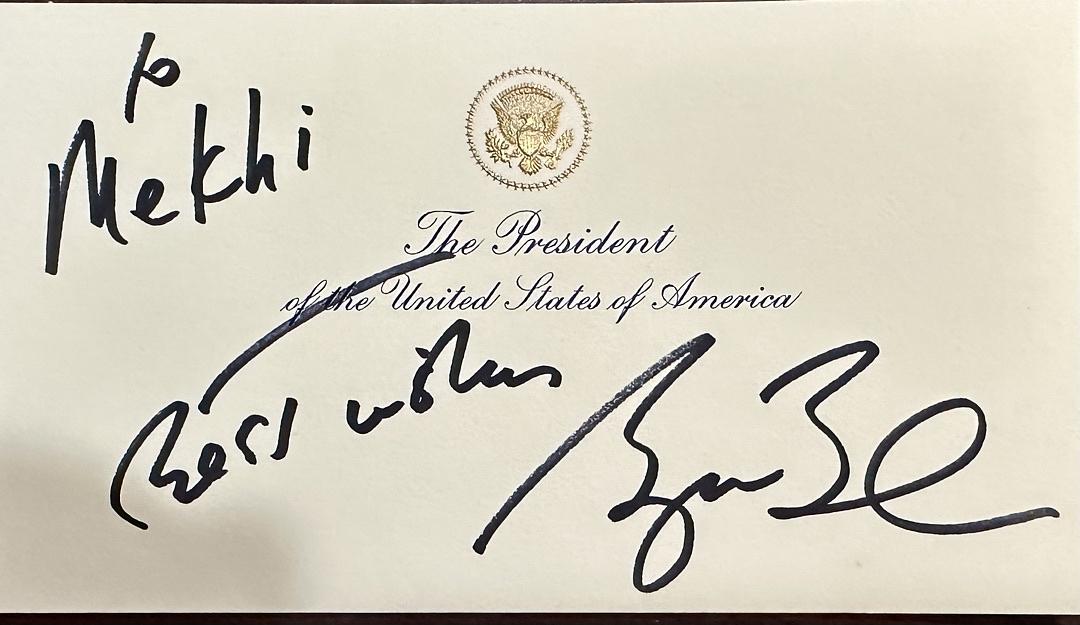 to
Mekhi
The President
of the United States of America
Best wishes